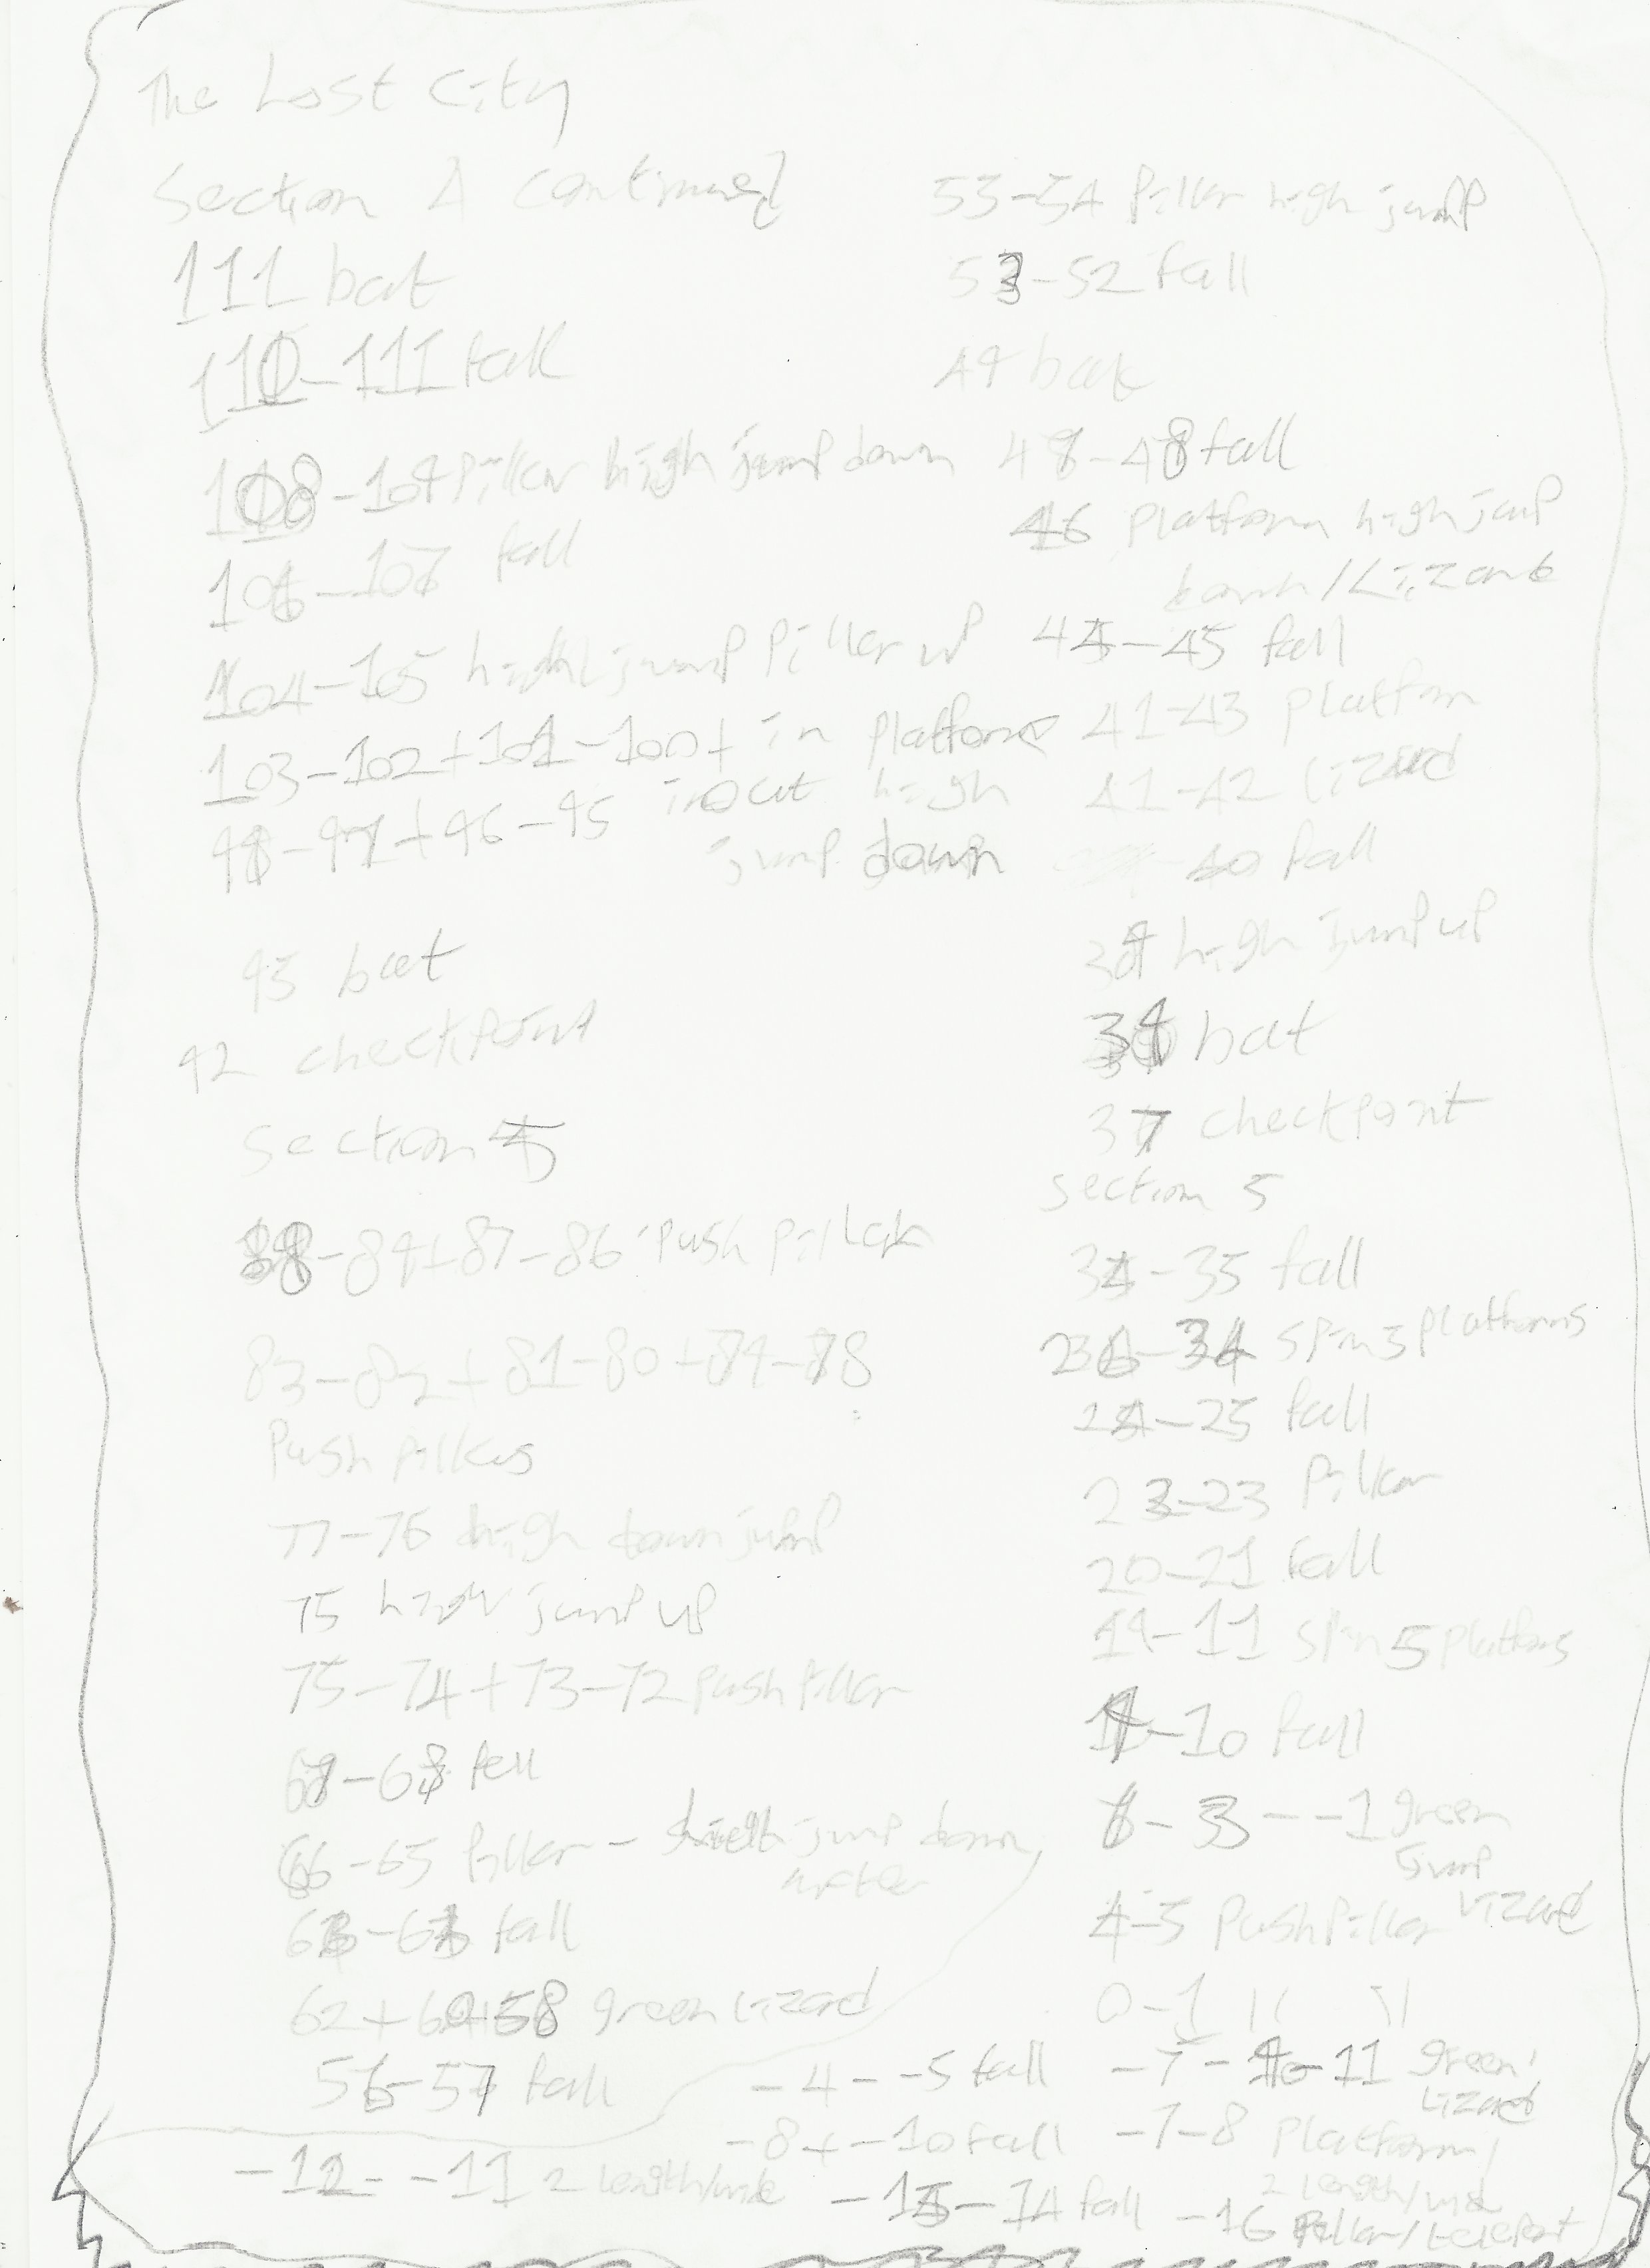 The Lost City
Section 4 continued
111 bat
110-111 fall
108-109 Pillar high jump down
106-107 fall
104-105 high jump Piller up
103-102+101-100+ in platforms
98-97+96-95 in out high
jump down
93 bat
92 checkpoint
Section 5
88-89+87-86 push pillar
83-82+81-80+79-78
Push pillars
77-76 high down jump
75 high jump up
75-74+73-72 push pillar
67-68 fall
66-65 Pillar - high jump down,
after
fall
62+60+58 green lizard
56-57 fall
-12--11 2 length/wide
53-54 Pillar high jump
53-52 fall
49 bat
48 fall
46 Platform high jump
down/Lizard
44-45 fall
41-43 platform
41-42 lizard
40 fall
39 high jump up
bat
37 checkpoint
Section 5
34-35 fall
26-34 spin 3 platforms
24-25 fall
23 Pillar
20-21 fall
19-11 spin 5 platforms
-10 fall
3--1 green
jump
lizard
4-5 Push Pillar
0-1 11 11
-4--5 fall
-7 -11 green
lizard
-8+-10 fall
-7-8 Platform/
2 length/wide
-14 fall
-16 Pillar/teleport